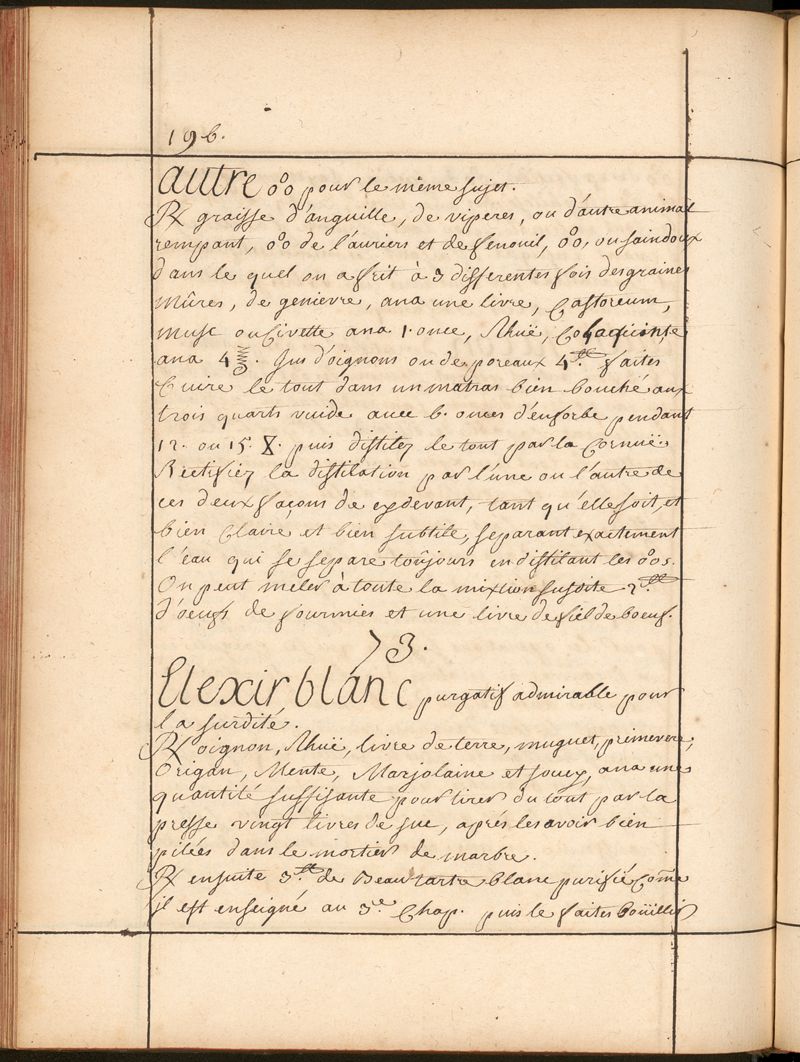 196.
autre o°o pour le même sujet.
℞ graisse d'anguille, de viperes, ou d'autre animal
rempant, o°o de l'auriers et de fenouil, o°o, ou saindoux
dans le quel on a frit à 3 differentes fois des graines
mûres, de genievre, ana une livre, Castoreum,
musc ou Civette ana 1. once, Rhuë, Coloquinte
ana 4 ℥. Jus d'oignons ou de poreaux 4 ₶. faites
Cuire le tout dans un matras bien bouché aux
trois quarts vuide avec 6. onces d'enforbe pendant
12. ou 15 X. puis distilez le tout par la Cornuë
Rectifiez la distilation par l'une ou l'autre de
ces deux façons de cydevant, tant qu'elle soit, et
bien Claire et bien subtile, separant exactement
l'eau qui se separe toûjours en distilant les o°os.
On peut meler à toute la mixtion susdite 2 ₶
d'oeufs de fourmies et une livre de fiel de boeuf.
73.
Elexir blanc purgatif admirable pour
la surdité.
℞ oignon, Rhuë, livre de terre, muguet, primevere,
Origan, Mente, Marjolaine et soucy, ana une
quantité suffisante pour tirer du tout par la
presse vingt livres de suc, aprés les avoir bien
pilées dans le mortier de marbre.
℞ ensuite 3 ₶ de Beau tartre blanc purifié Come
il est enseigné au 3e Chap. puis le faites Boüillir